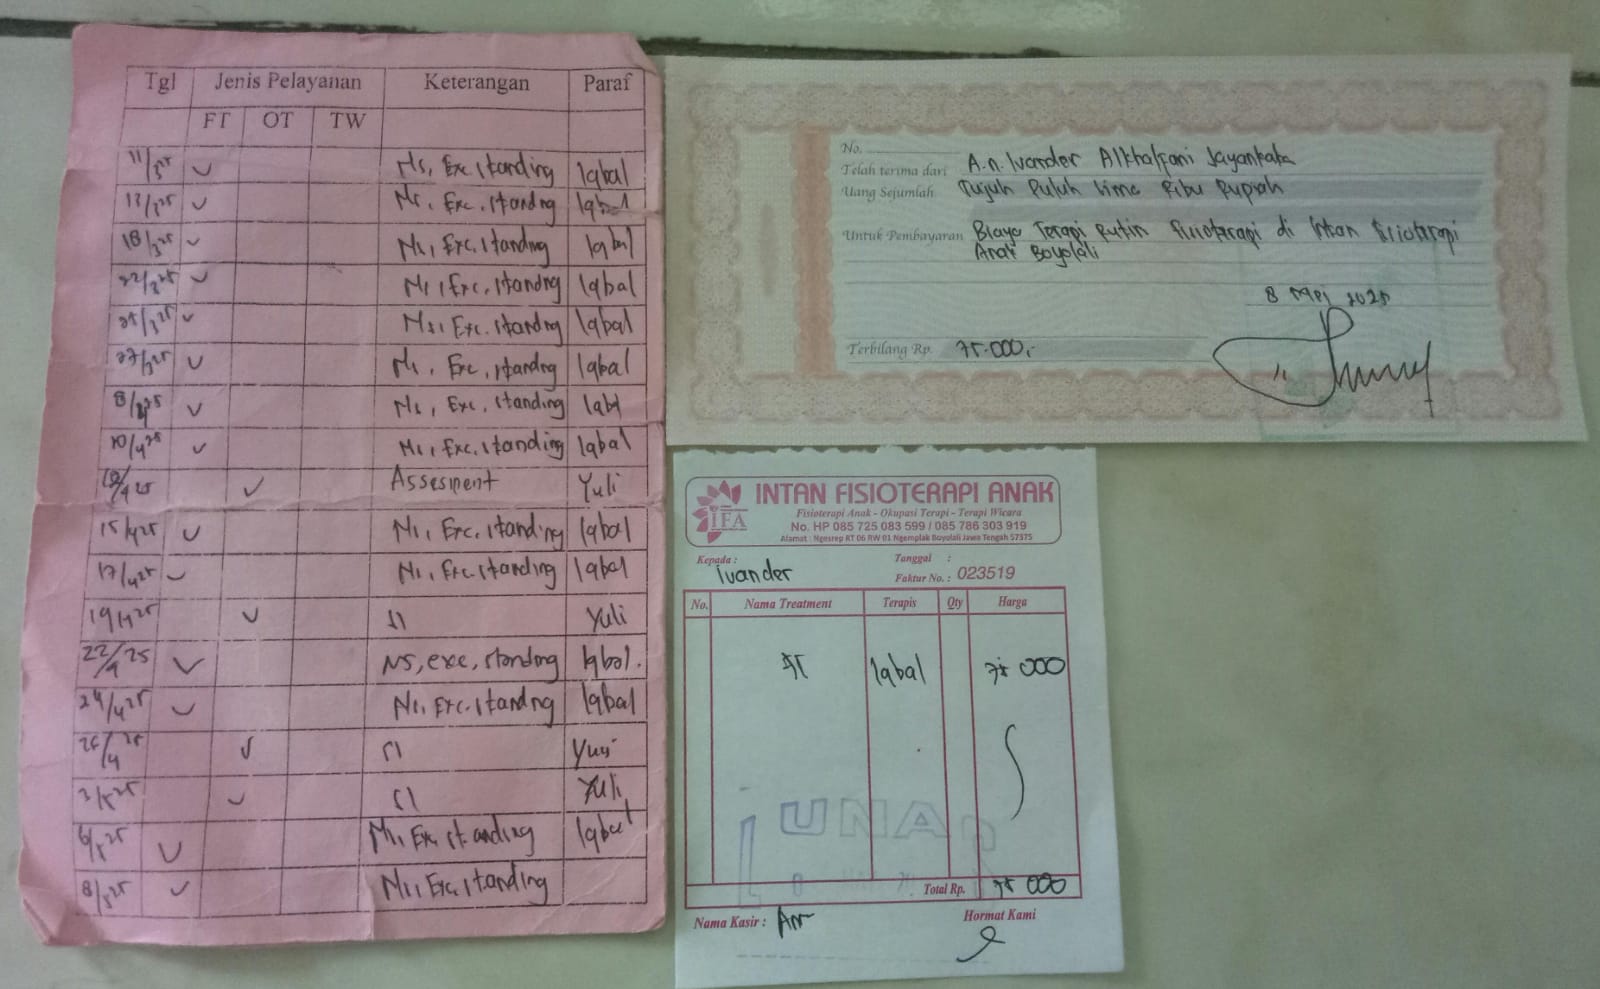 Tgl Jenis Pelayanan Keterangan Paraf
FT OT TW
11/3 25 ✓ Ns, Exc, standing Iqbal
13/3 25 ✓ Ns, Exc, standing Iqbal
18/3 25 ✓ Ns, Exc, standing Iqbal
22/3 25 ✓ Ns, Exc, standing Iqbal
25/3 25 ✓ Ns, Exc, standing Iqbal
27/3 25 ✓ Ns, Exc, standing Iqbal
8/4 25 ✓ Ns, Exc, standing
10/4 25 ✓ Ns, Exc, standing Iqbal
12/4 25 ✓ Assesment Yuli
15/4 25 ✓ Ns, Exc, standing Iqbal
17/4 25 ✓ Ns, Exc, standing Iqbal
19/4 25 ✓ SI Yuli
22/4 25 ✓ NS, exc, standing Iqbal.
24/4 25 ✓ Ns, Exc, standing Iqbal
26/4 25 ✓ SI Yuli
3/5 25 ✓ SI Yuli
6/5 25 ✓ Ns, Exc, standing Iqbal
8/5 25 ✓ Ns, Exc, standing
No.
Telah terima dari A.n. Ivander Alkhalfani Jayankata
Uang Sejumlah Tujuh Puluh Lima Ribu Rupiah
Untuk Pembayaran Biaya Terapi Rutin Fisioterapi di Intan Fisioterapi
Anak Boyolali
8 Mei 2025
Terbilang Rp. 75.000,-
INTAN FISIOTERAPI ANAK
IFA
Fisioterapi Anak - Okupasi Terapi - Terapi Wicara
No. HP 085 725 083 599 / 085 786 303 919
Alamat : Ngesrep RT 06 RW 01 Ngemplak Boyolali Jawa Tengah 57375
Kepada : Ivander Tanggal :
Faktur No. : 023519
No. Nama Treatment Terapis Qty Harga
FT Iqbal 75 000
LUNAS
Total Rp. 75 000
Nama Kasir : Hormat Kami